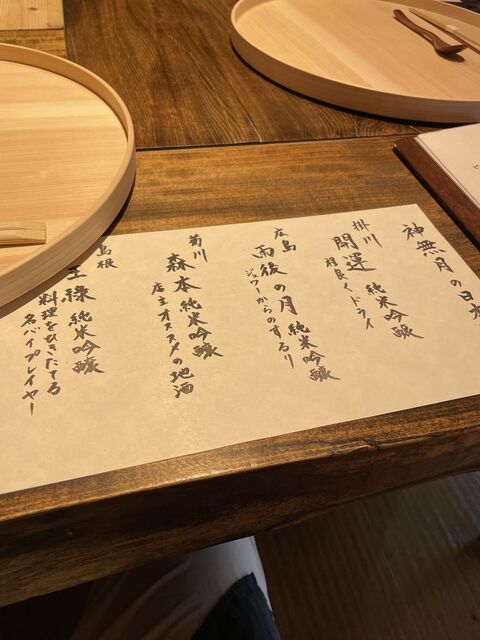 神無月の日本
掛川
開運 純米吟醸
程良くドライ
広島
雨後の月 純米吟醸
ジュワーからのするり
菊川
森本 純米吟醸
店主オススメの地酒
島根
王祿 純米吟醸
料理をひきたてる
名バイプレイヤー